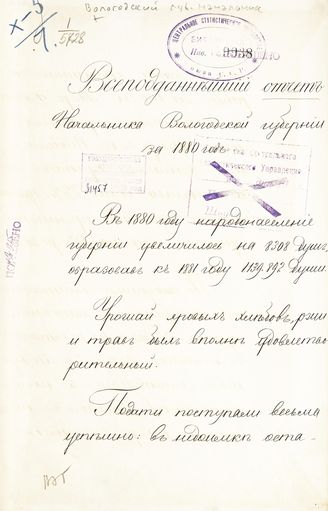 Вологодский губ. начальника
X-5
9
1
5728
ЦЕНТРАЛЬНОЕ СТАТИСТИЧЕСКОЕ
Инв. 9938
Всеподданнѣйшій отчетъ
Начальника Вологодской губерніи
за 1880 годъ
31457
Въ 1880 году народонаселеніе
губерніи увеличилось на 8308 душъ,
образовавъ къ 1881 году 1.139.892 души.
Урожай яровыхъ хлѣбовъ, ржи
и травъ былъ вполнѣ удовлетво-
рительный.
Подати поступали весьма
успѣшно: въ недоимкѣ оста-